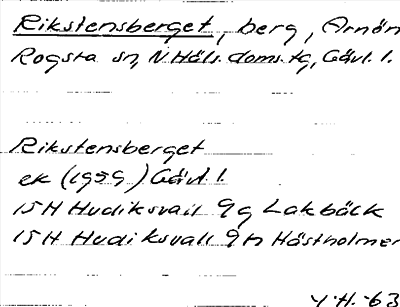 Rikstensberget, berg, Arnön
Rogsta sn, N. Häls. doms. tg, Gävl. l.
Rikstensberget
ek (1959) Gävl. l.
15H Hudiksvall 9g Lakbäck
15H Hudiksvall 9h Hästholmen
Y. H. -63